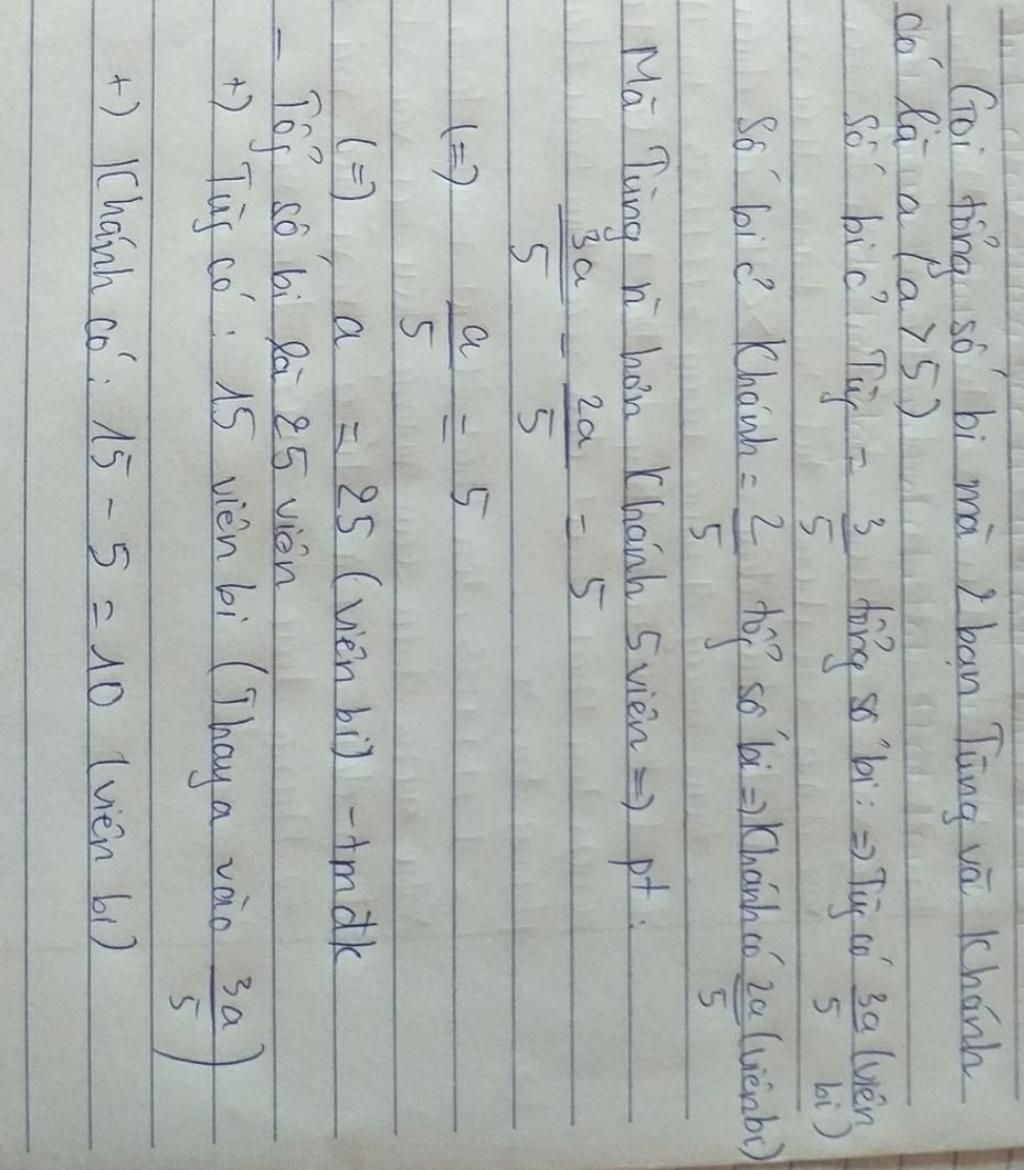 Gọi tổng số bi mà 2 bạn Tùng và Khánh
có là a (a > 5)
Số bi c̉ Tùg = 3/5 tổng số bi: => Tùg có 3a/5 (viên bi)
Số bi c̉ Khánh = 2/5 tổg số bi => Khánh có 2a/5 (viên bi)
Mà Tùng n̄ hơn Khánh 5 viên => pt:
3a/5 - 2a/5 = 5
(=) a/5 = 5
(=) a = 25 (viên bi) - tmđk
- Tổg số bi là 25 viên
+) Tùg có: 15 viên bi (Thay a vào 3a/5)
+) Khánh có: 15 - 5 = 10 (viên bi)